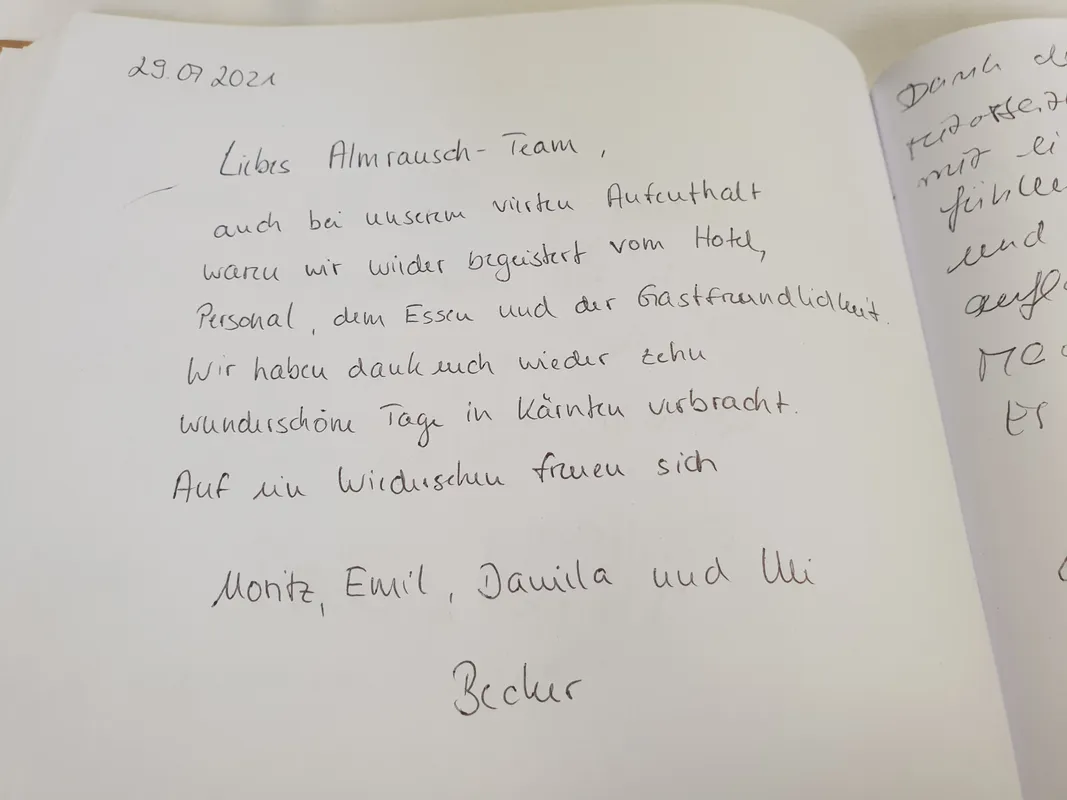 29.07 2021
Liebes Almrausch-Team,
auch bei unserem vierten Aufenthalt
waren wir wieder begeistert vom Hotel,
Personal, dem Essen und der Gastfreundlichkeit.
Wir haben dank euch wieder zehn
wunderschöne Tage in Kärnten verbracht.
Auf ein Wiedersehen freuen sich
Moritz, Emil, Daniela und Uli
Becker
Dank
mit
fühlen
und